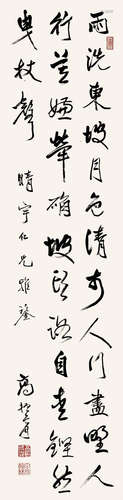 雨洗東坡月色清市人行盡野人
行莫嫌犖确坡頭路自愛鏗然
曳杖聲
晴宇仁兄雅鑒 高